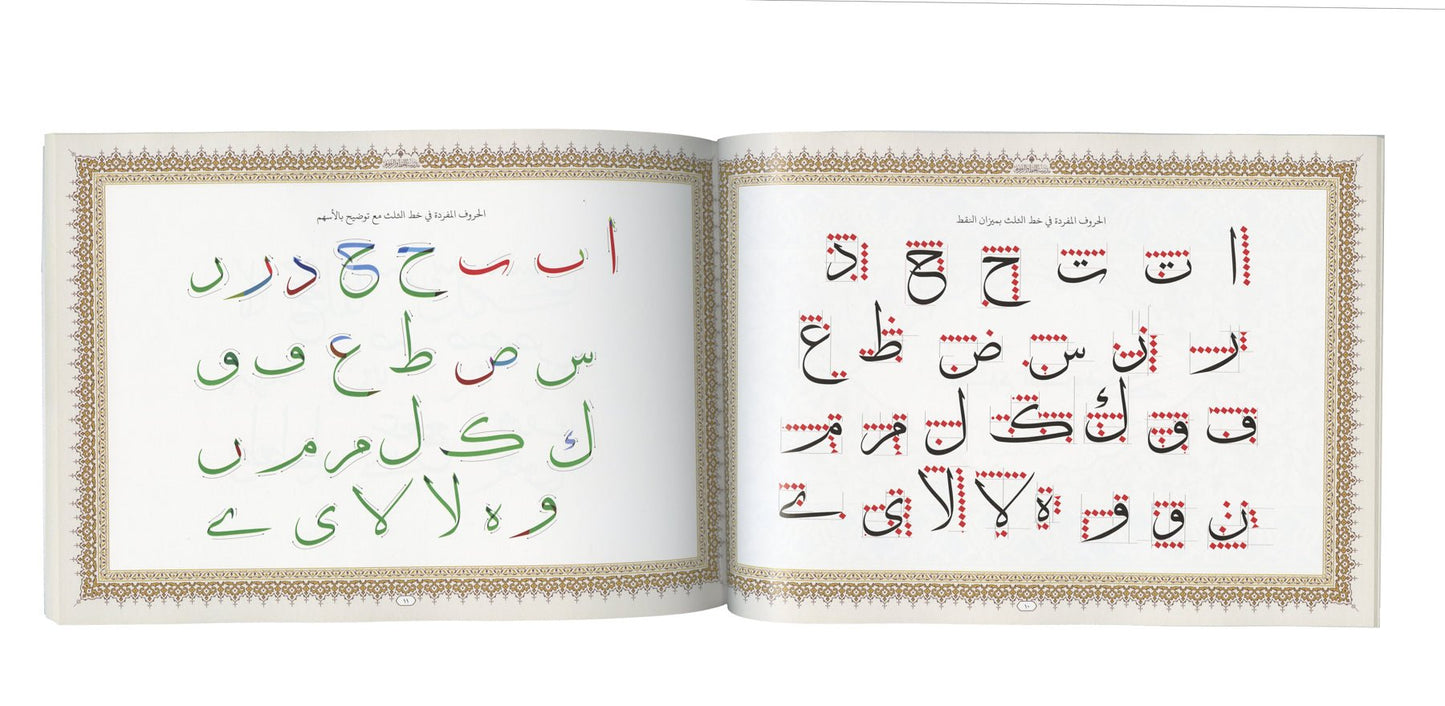 الحروف المفردة في خط الثلث بميزان النقط
ا ت ت ج ج ذ
ر ز س ض ظ غ
ف ق ك ک ل م م
ن و و ه لا لا ي ے
١٠
الحروف المفردة في خط الثلث مع توضيح بالأسهم
ا ب ب ح ح د ر ر
س ص ط ع ف و
ك ک ل م م ں
و ه لا لا ى ے
١١